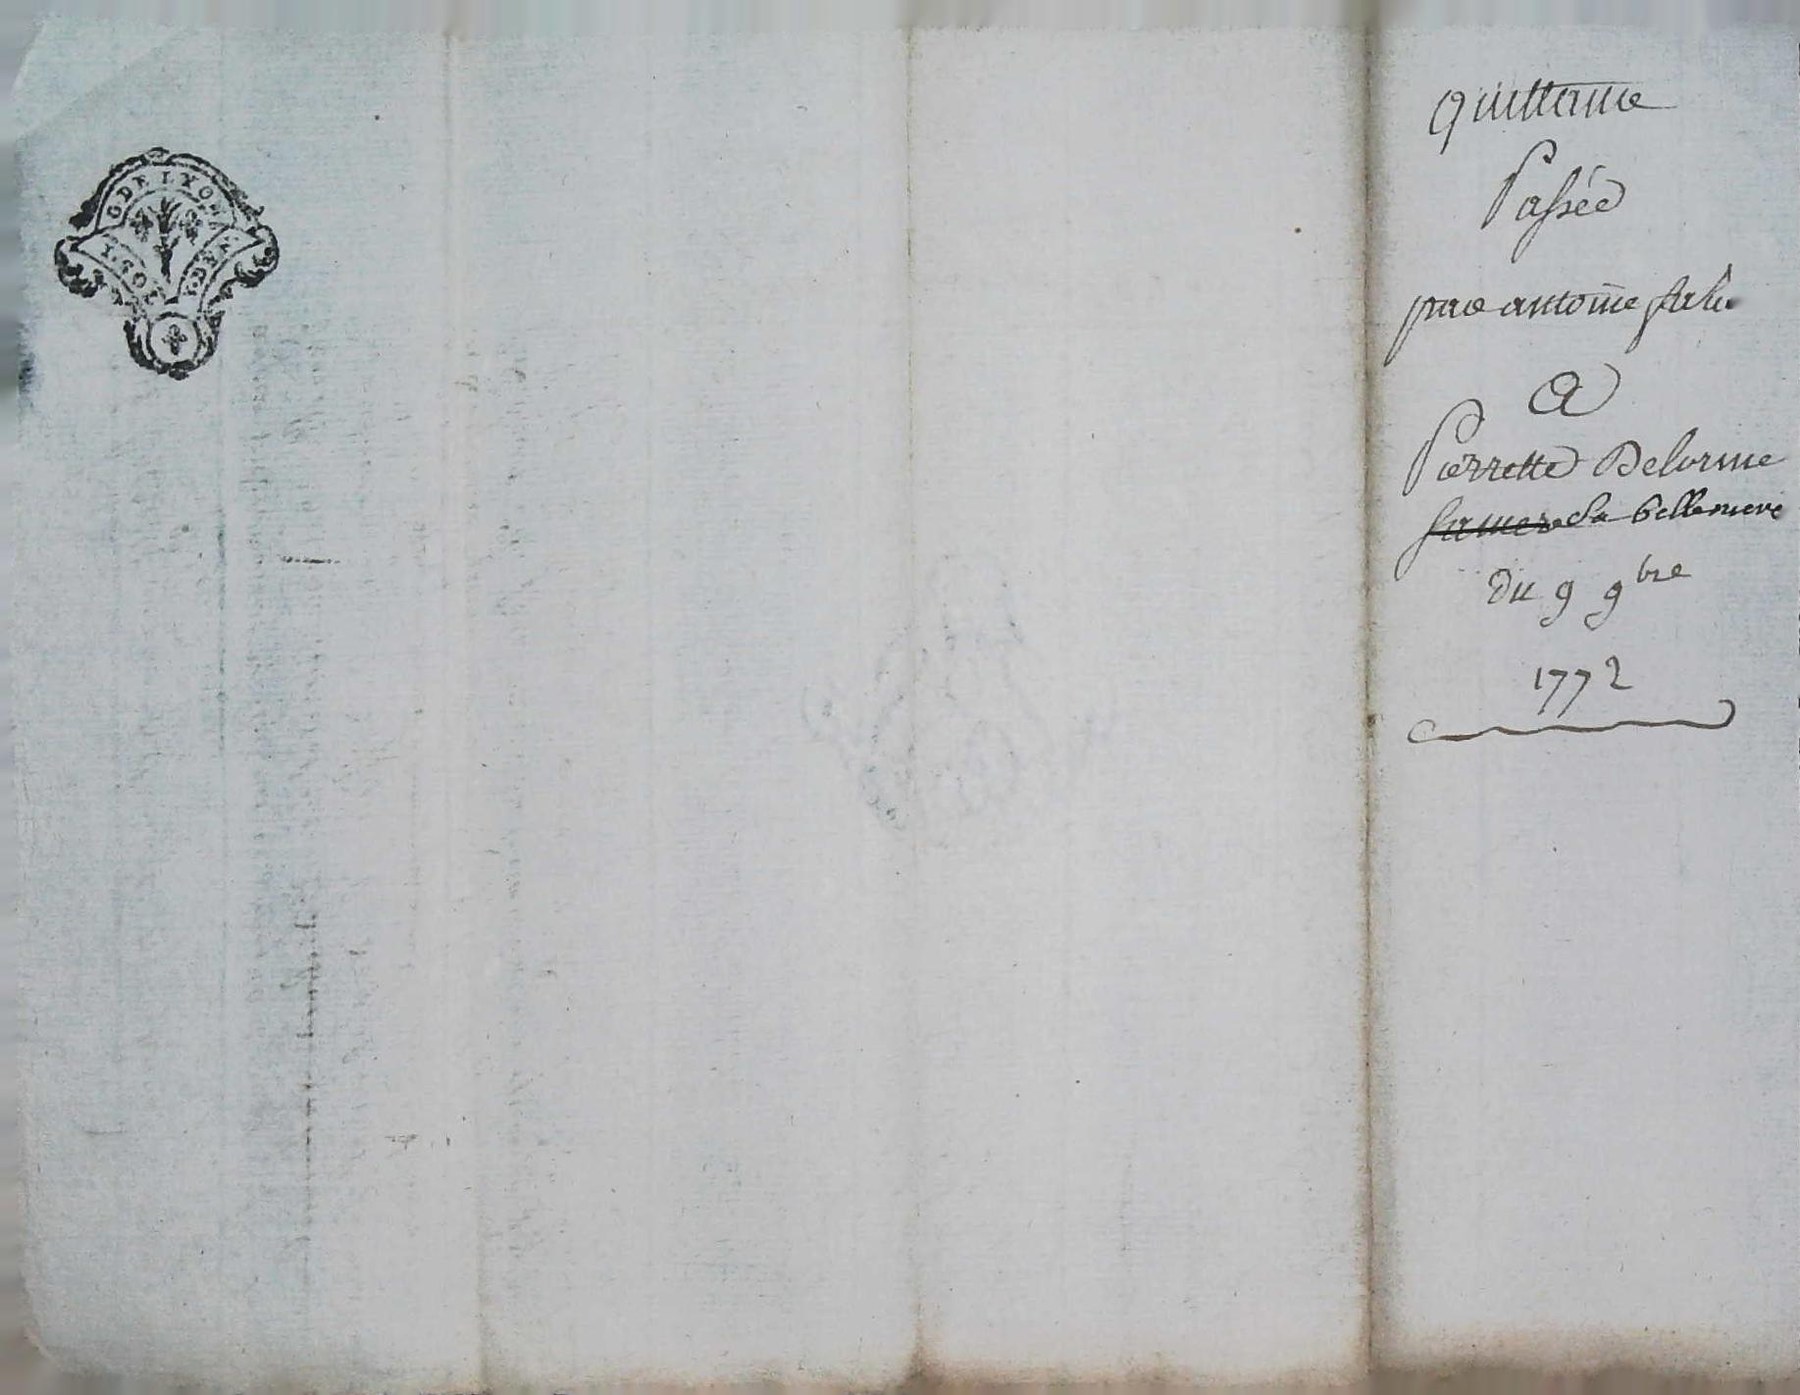 G DE LYON
quittance
Passée
par antoine
a
Pierrette Delorme
sa mere sa bellemere
du 9 9bre
1772